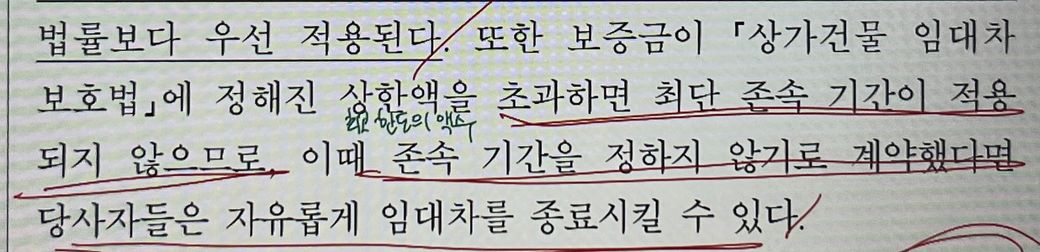 법률보다 우선 적용된다. 또한 보증금이 「상가건물 임대차
보호법」에 정해진 상한액을 초과하면 최단 존속 기간이 적용
최고 한도의 액수
되지 않으므로, 이때 존속 기간을 정하지 않기로 계약했다면
당사자들은 자유롭게 임대차를 종료시킬 수 있다.